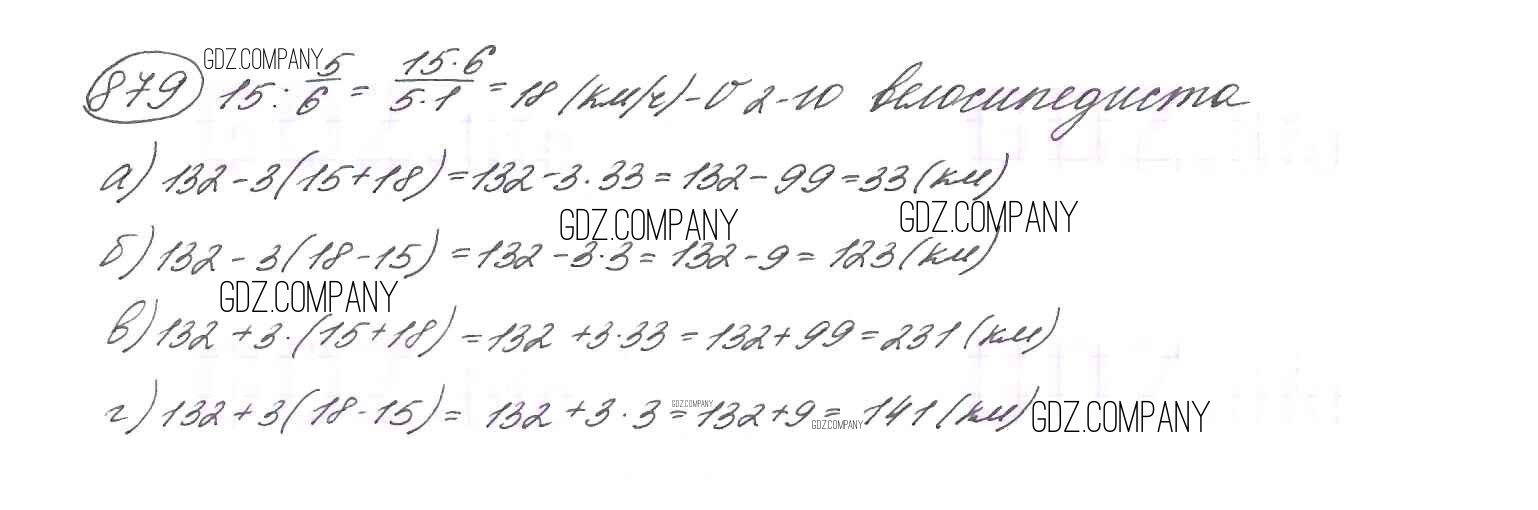 GDZ.COMPANY
879 15 : 5/6 = 15·6/5·1 = 18 (км/ч) - v 2-го велосипедиста
а) 132 - 3(15+18) = 132 - 3·33 = 132 - 99 = 33 (км)
GDZ.COMPANY GDZ.COMPANY
б) 132 - 3(18-15) = 132 - 3·3 = 132 - 9 = 123 (км)
GDZ.COMPANY
в) 132 + 3·(15+18) = 132 + 3·33 = 132 + 99 = 231 (км)
GDZ.COMPANY
г) 132 + 3(18-15) = 132 + 3·3 = 132 + 9 = 141 (км) GDZ.COMPANY
GDZ.COMPANY